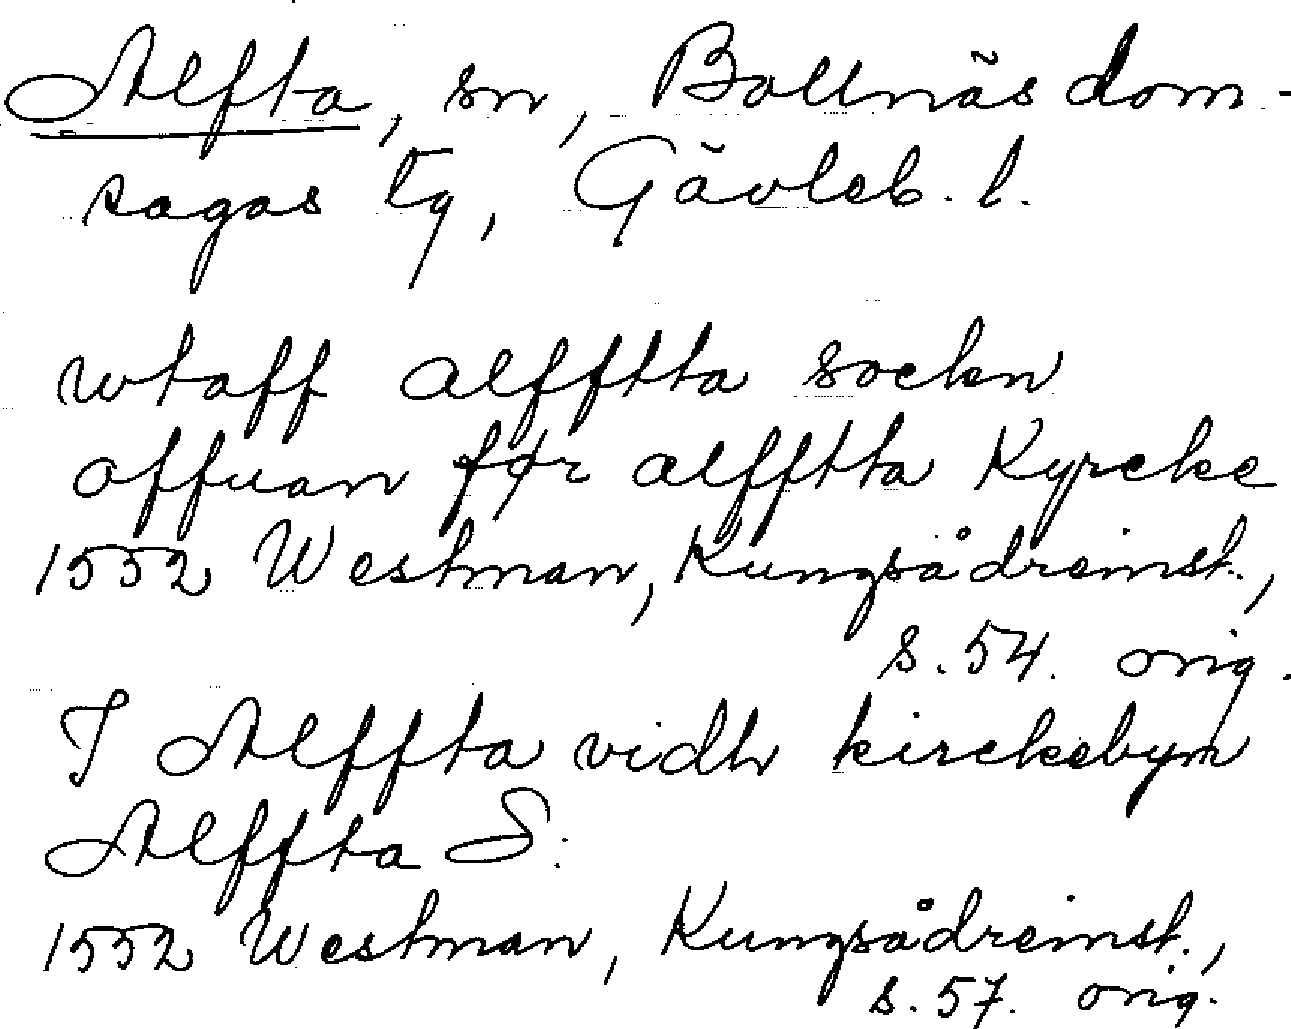 Alfta, sn, Bollnäs dom-
sagas tg, Gävleb. l.
wtaff alfftta sockn
offuan før alfftta Kyrcke
1552 Westman, Kungsådreinst.,
s. 54. orig.
I Alffta vidh kirckebym
Alffta S:
1552 Westman, Kungsådreinst.,
s. 57. orig.